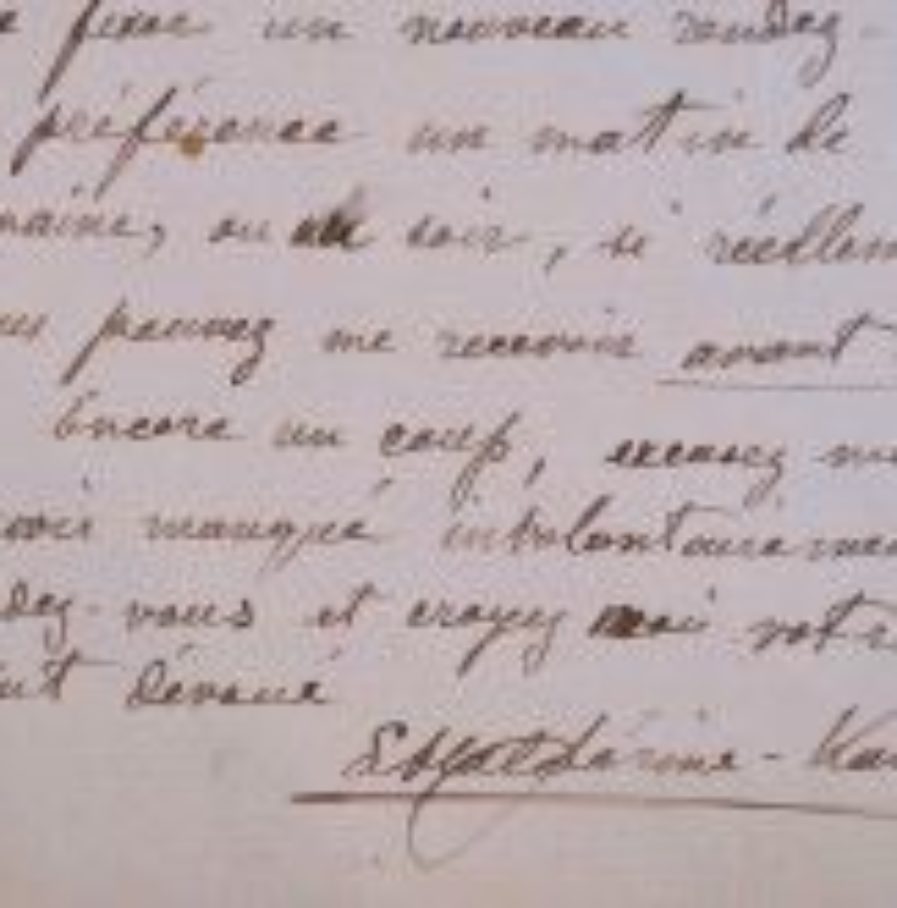 fixer un nouveau rendez-
préférence un matin de
maine, ou le soir, si réellem
us pouvez me recevoir avant
Encore un coup, excusez mo
voir manqué involontairemen
dez-vous et croyez moi votre
out dévoué